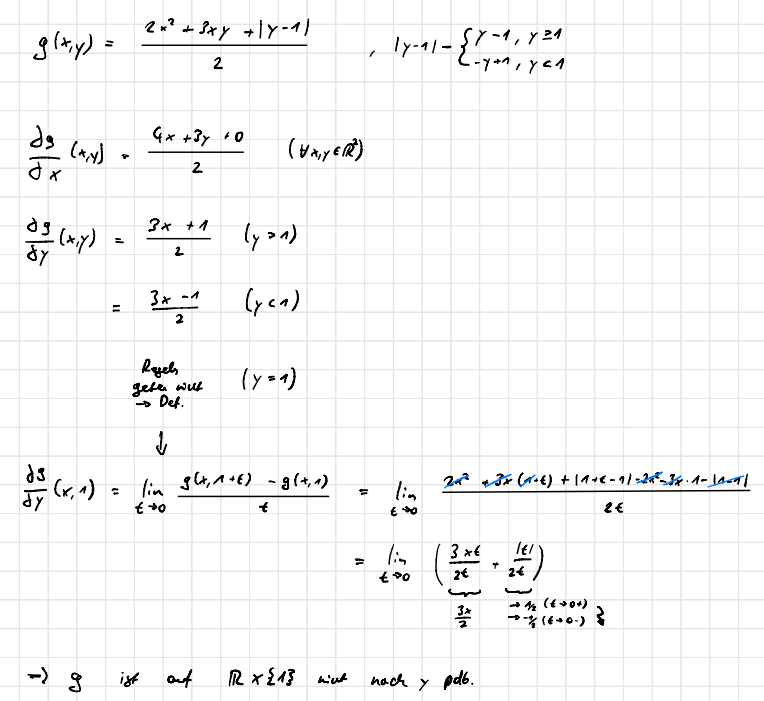 g(x,y) = (2x² + 3xy + |y-1|) / 2 , |y-1| = { y-1, y≥1
-y+1, y<1
∂g/∂x (x,y) = (4x + 3y + 0) / 2 (∀x,y∈ℝ²)
∂g/∂y (x,y) = (3x + 1) / 2 (y > 1)
= (3x - 1) / 2 (y < 1)
Regeln
gehen nicht (y = 1)
→ Def.
↓
∂g/∂y (x,1) = lim t→0 (g(x,1+t) - g(x,1)) / t = lim t→0 (2x² + 3x(1+t) + |1+t-1| - 2x² - 3x·1 - |1-1|) / 2t
= lim t→0 ( 3xt/2t + |t|/2t )
3x/2 → 1/2 (t→0+)
→ -1/2 (t→0-) }
→ g ist auf ℝ x {1} nicht nach y pdb.